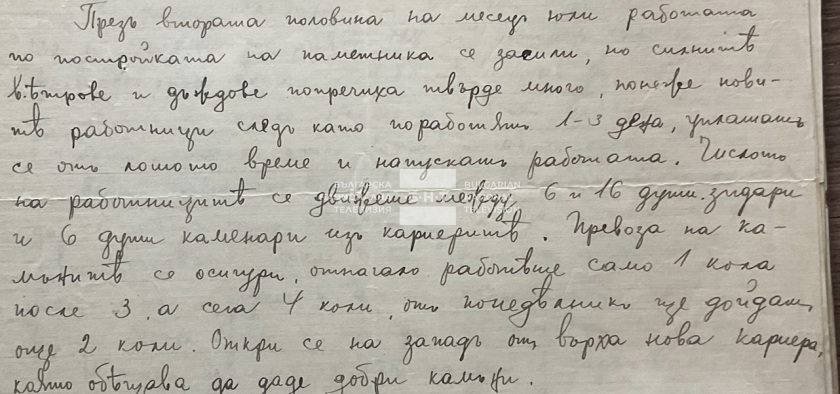 Презъ втората половина на месецъ юли работата
по постройката на паметника се засили, но силнитѣ
вѣтрове и дъждове попречиха твърде много, понеже нови-
тѣ работници следъ като поработятъ 1-3 дена, уплашатъ
се отъ лошото време и напускатъ работата. Числото
на работницитѣ се движеше между 6 и 16 души зидари
и 6 души каменари изъ кариеритѣ. Превоза на ка-
мънитѣ се осигури, отначало работѣше само 1 кола
после 3, а сега 4 коли, отъ понедѣлникъ ще дойдатъ
още 2 коли. Откри се на западъ отъ върха нова кариера,
която обѣщава да даде добри камъни.
БЪЛГАРСКА
ТЕЛЕВИЗИЯ
БНТ
BULGARIAN
TELEVISION